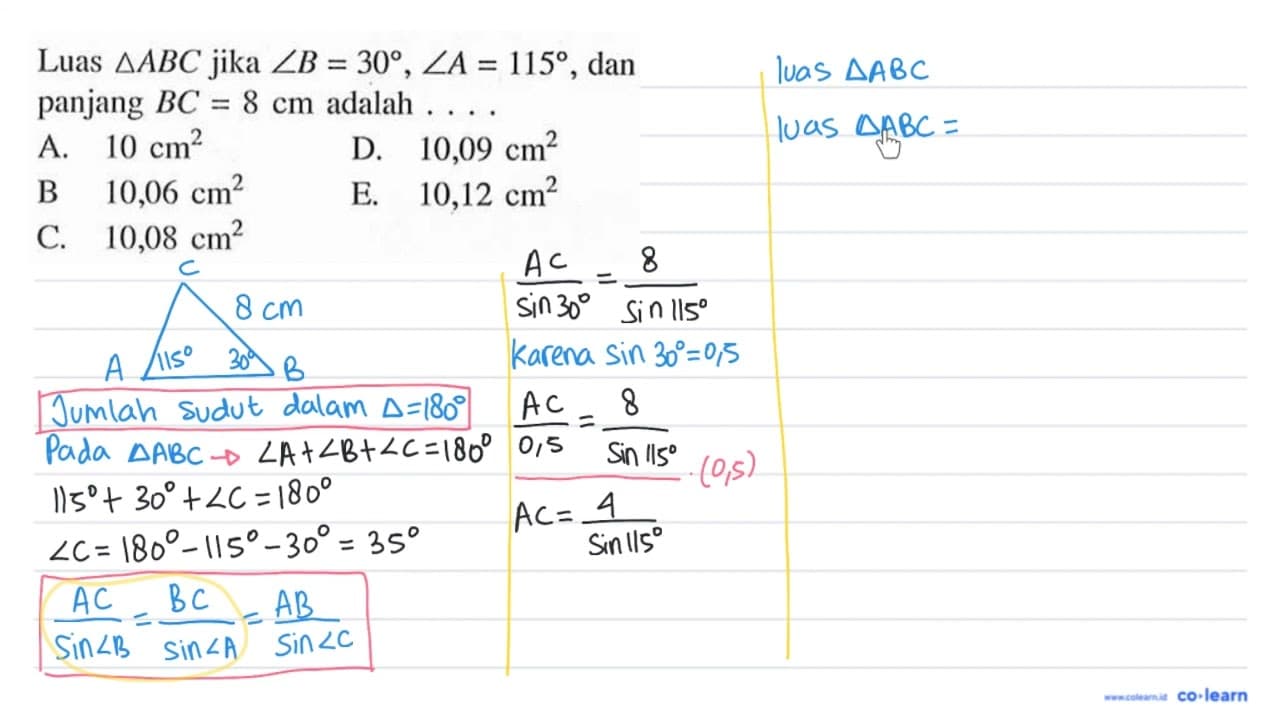 Luas △ABC jika ∠B = 30°, ∠A = 115°, dan
panjang BC = 8 cm adalah . . . .
A. 10 cm²
B 10,06 cm²
C. 10,08 cm²
D. 10,09 cm²
E. 10,12 cm²
C
8 cm
A 115° 30° B
Jumlah sudut dalam △=180°
Pada △ABC → ∠A+∠B+∠C=180°
115°+ 30°+∠C=180°
∠C=180°-115°-30°= 35°
AC/Sin∠B = BC/sin∠A = AB/Sin∠C
AC/sin30° = 8/Sin115°
Karena sin 30°=0,5
AC/0,5 = 8/Sin115°
·(0,5)
AC= 4/Sin115°
luas △ABC
luas △ABC =
www.colearn.id co·learn